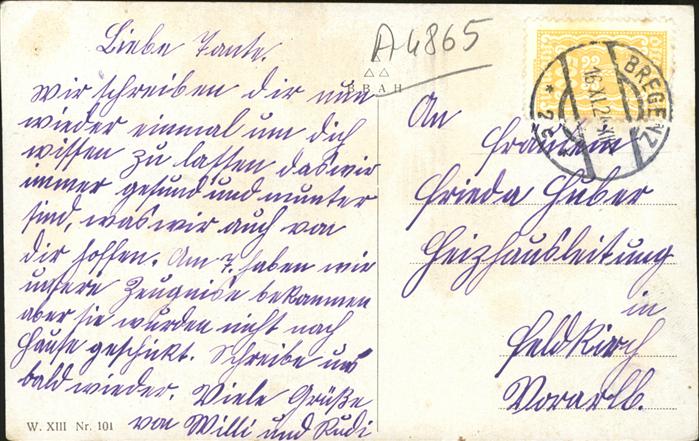 Liebe Tante.
A4865
BRAH
wir schreiben dir nun
wieder einmal um dich
wissen zu lassen das wir
immer gesund und munter
sind, was wir auch von
dir hoffen. Am 7. haben wir
unsere Zeugnisse bekommen
aber sie wurden nicht nach
Hause geschikt. Schreibe uns
bald wieder. Viele Grüße
von Willi und Rudi
W. XIII Nr. 101
BREGENZ
An
Fräulein
Frieda Huber
Heizhausleitung
in
Feldkirch
Vorarlb.